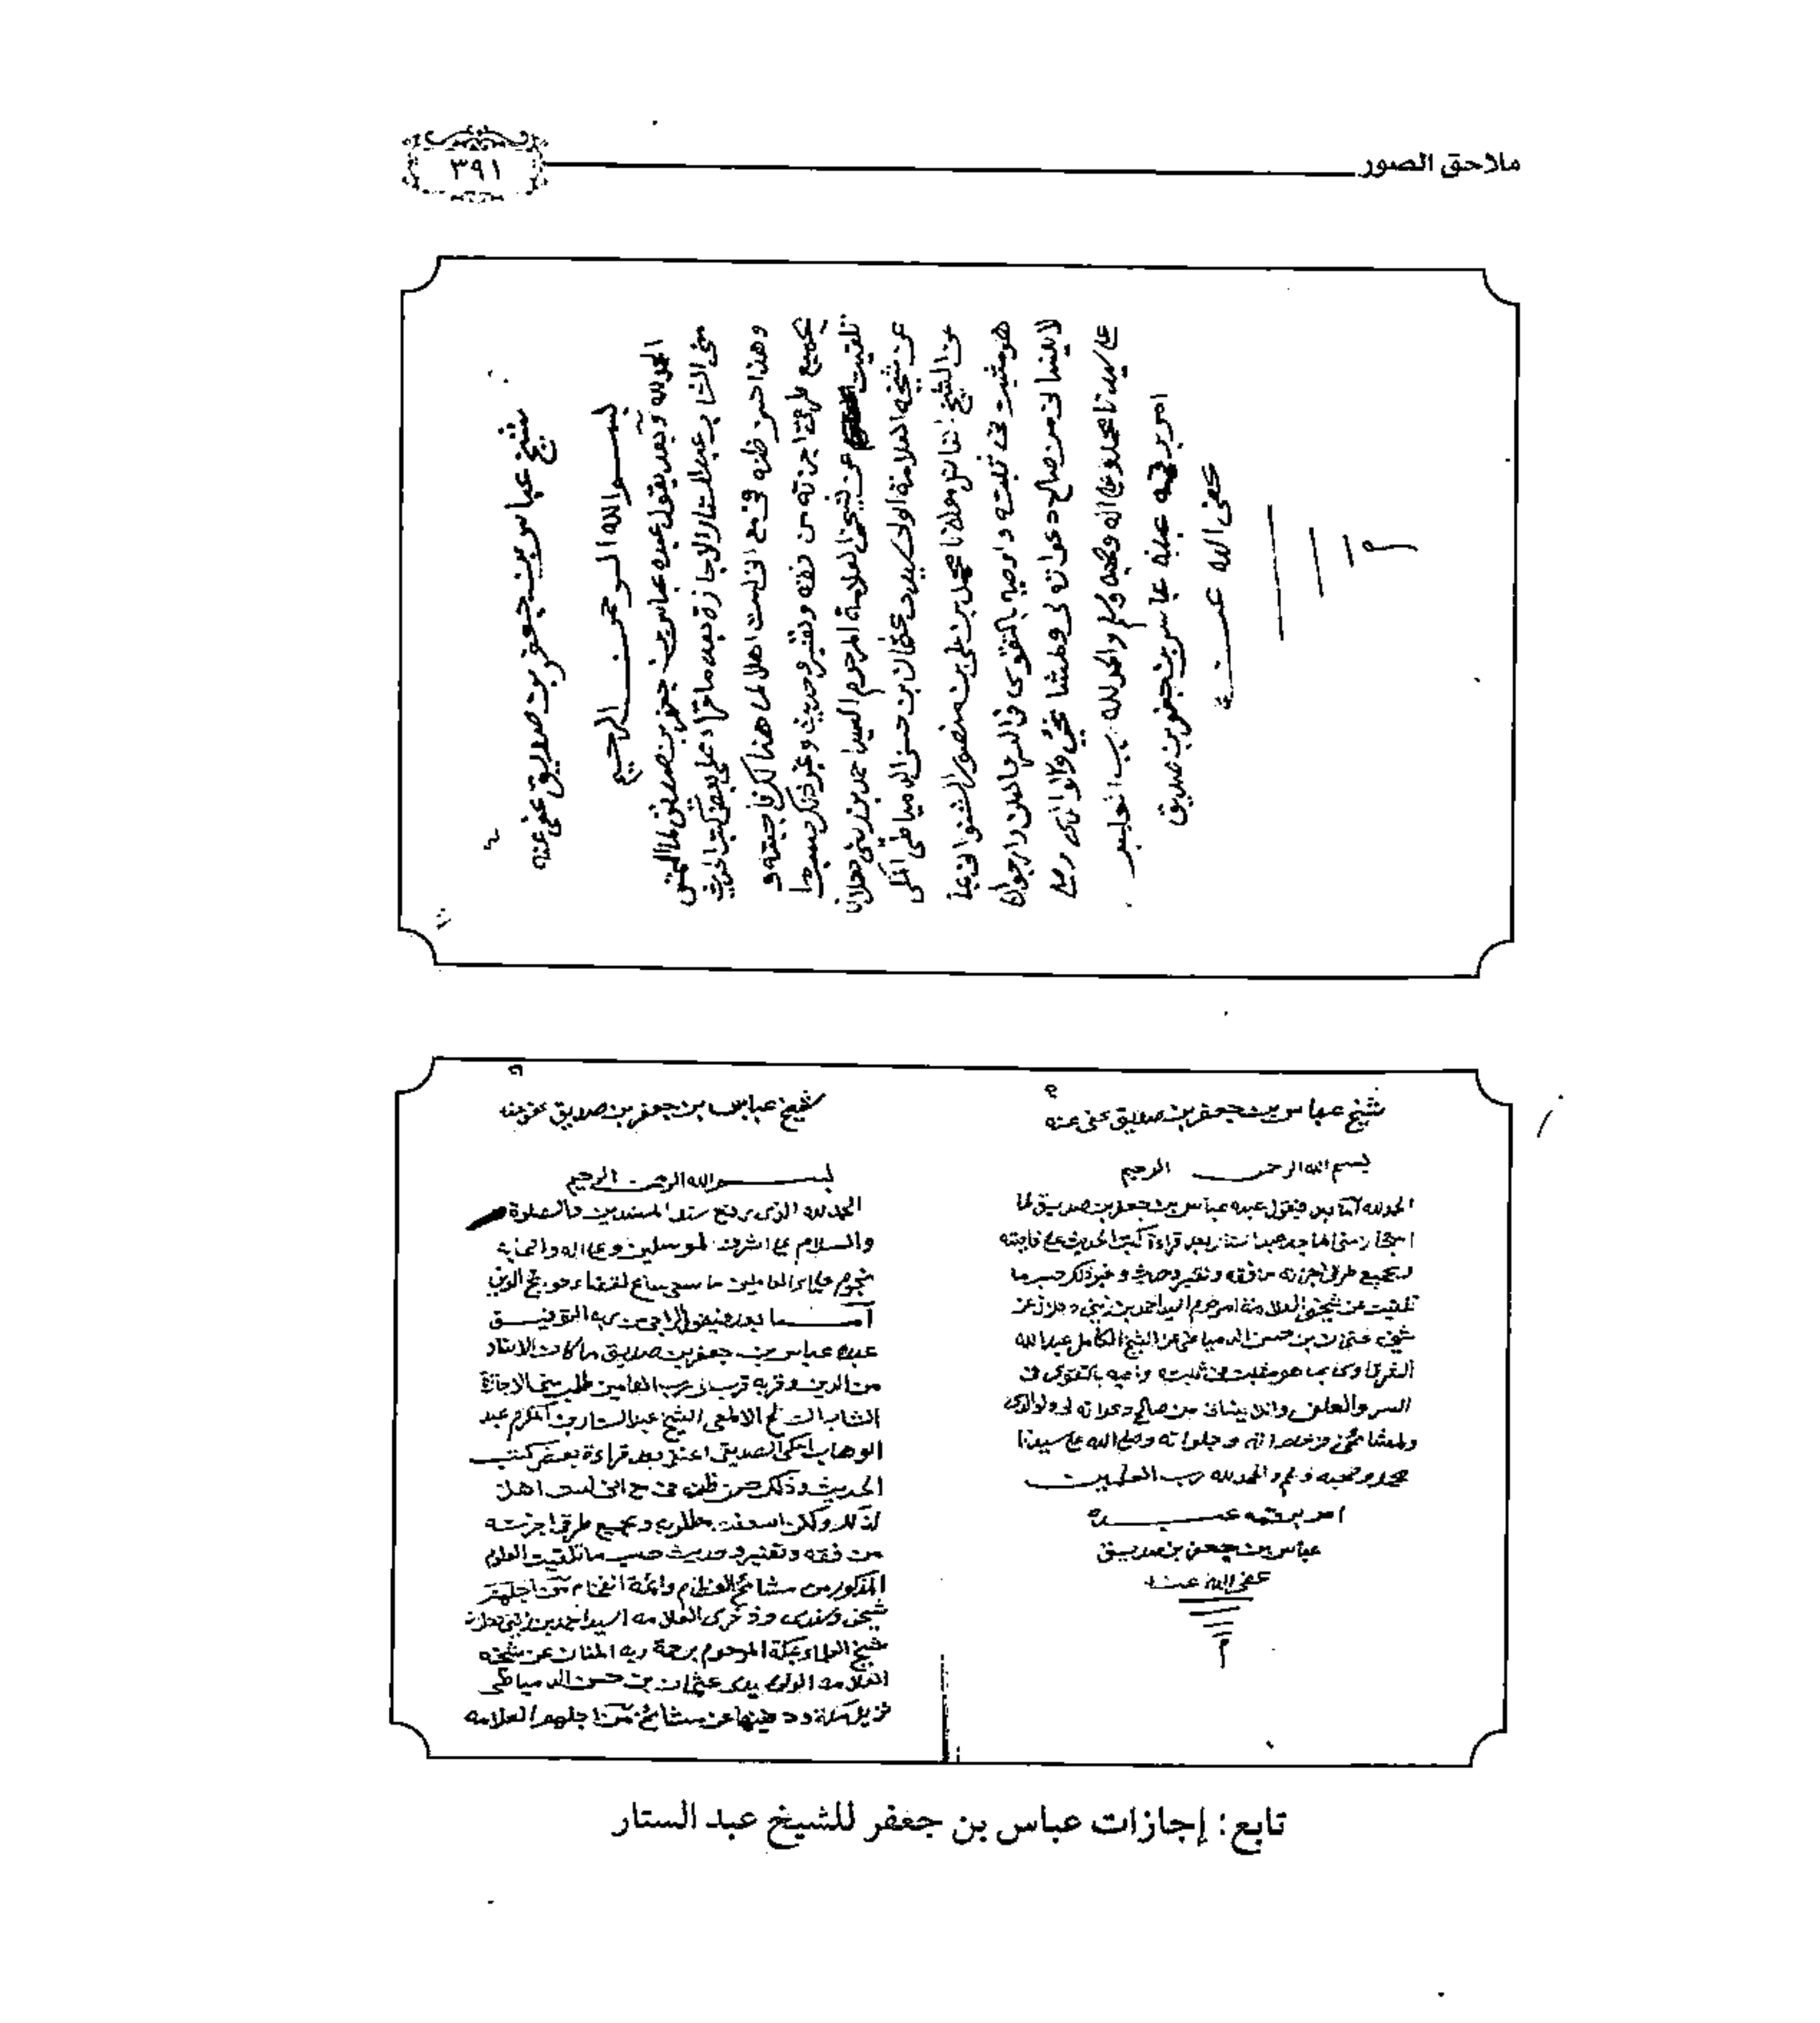 ملاحق الصور
٣٩١
شيخ عباس بن جعفر بن صديق عفى عنه
بسم الله الرحمن الرحيم
الحمد لله وبعد يقول عبده عباس بن جعفر بن صديق لما التمس
مني الشاب عبد الستار الاجازة بعد ما قراء على بعض كتب الحديث
وهذا حسن ظنه في مع اني لست اهلا لهذا لكن فاجبته و
بجميع طرقي اجزته من فقه وتفسير وحديث وغير ذلك حسبما
تلقيت عن شيخي العلامة المرحوم السيد احمد بن زيني دحلان
عن شيخه العلامة الولي سيدي عثمان بن حسن الدمياطي المكي
عن الشيخ مولانا محمد بن علي بن منصور الشنواني بما
هو مثبت في ثبته واوصيه بالتقوى في السر والعلن وارجوان
لا ينساني من صالح دعواته لي ولمشايخي ولوالدي وصلى
على سيدنا محمد وعلى اله وصحبه وسلم والحمد لله رب العالمين
امر برقمه عبده عباس بن جعفر بن صديق
عفى الله عنه
شيخ عباس بن جعفر بن صديق عفى عنه
بسم الله الرحمن الرحيم
الحمد لله اما بعد فيقول عبده عباس بن جعفر بن صديق لما
عبد الستار بعد قراءة كتب الحديث على فاجبته
وبجميع طرقي اجزته من فقه وتفسير وحديث وغير ذلك حسبما
تلقيت عن شيخي العلامة المرحوم السيد احمد بن زيني دحلان عن
شيخه عثمان بن حسن الدمياطي عن الشيخ الكامل عبد الله
الشرقاوي بما هو مثبت في ثبته واوصيه بالتقوى في
السر والعلن وان لا ينساني من صالح دعواته لي ولوالدي
ولمشايخي في خلواته وجلواته وصلى الله على سيدنا
محمد وصحبه وسلم والحمد لله رب العالمين
امر برقمه عبده
عباس بن جعفر بن صديق
عفى الله عنه
شيخ عباس بن جعفر بن صديق عفى عنه
بسم الله الرحمن الرحيم
الحمد لله الذي رفع سند المسندين والصلوة
والسلام على اشرف المرسلين وعلى اله واصحابه
نجوم
اما بعد فيقول الراجي من ربه التوفيق
عبده عباس بن جعفر بن صديق لما كان الاسناد
من الدين وقربه قرب الى رب العالمين طلب مني الاجازة
الشاب الالمعي الشيخ عبد الستار بن المكرم عبد
الوهاب المكي الصديقي اعني بعد قراءة بعض كتب
الحديث وذلك حسن ظنه في مع اني لست اهل
لذلك ولكن اسعفت مطلوبه وبجميع طرقي اجزته
من فقه وتفسير وحديث حسب ما تلقيت العلوم
المذكور من مشايخ العظام وائمة الفخام من اجلهم
شيخي وسندي وذخري العلامه السيد احمد بن زيني دحلان
شيخ العلماء بمكة المرحوم برحمة ربه المنان عن شيخه
العلامه الولي سيدي عثمان بن حسن الدمياطي
نزيل مكة ودفينها عن مشايخ من اجلهم العلامه
تابع: إجازات عباس بن جعفر للشيخ عبد الستار